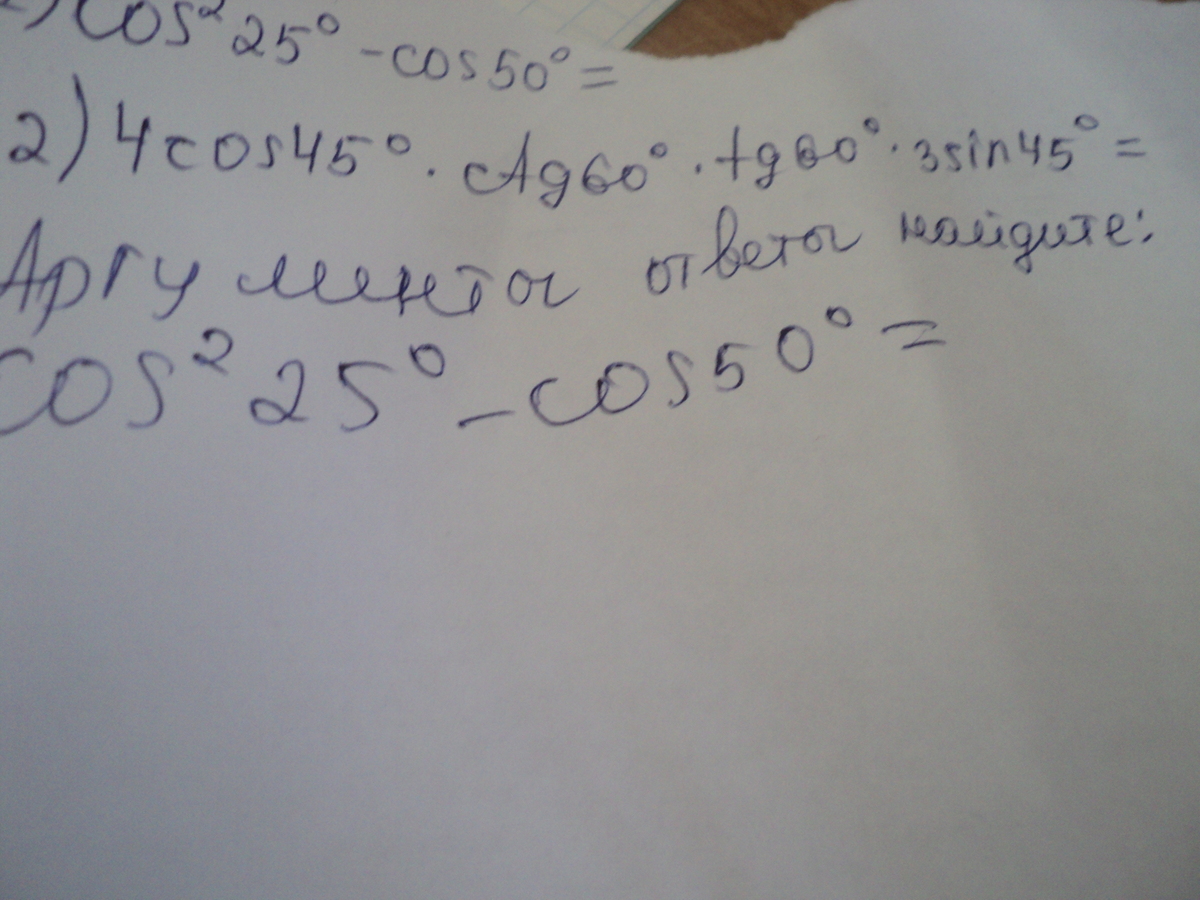 ) cos² 25° - cos 50° =
2) 4 cos 45° · ctg 60° · tg 60° · 3 sin 45° =
Аргументы ответы найдите:
cos² 25° - cos 50° =